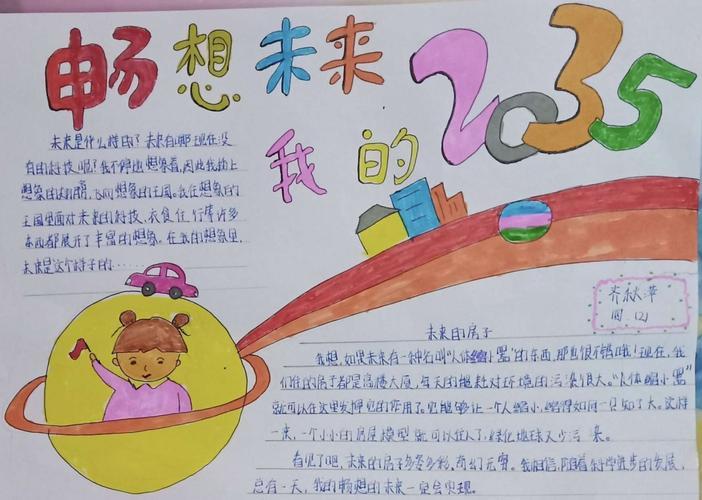 畅想未来
我的
2035
未来是什么样的？未来有哪些现在没
有的科技呢？我不停地想象着，因此我插上
想象的翅膀，飞向想象的王国。我在想象的
王国里面对未来的科技，衣食住行等许多
东西都展开了丰富的想象。在我的想象里，
未来是这个样子的……
齐秋萍
四(2)
未来的房子
我想，如果未来有一种名叫“人体缩小器”的东西，那也很不错哦！现在，我
们住的房子都是高楼大厦，每天的 对环境的污染很大。“人体缩小器”
就可以在这里发挥它的作用了。它能够让一个人缩小，缩得如同一只 大。这样
一来，一个小小的房屋模型就可以住人了，绿化地球又少污染。
看见了吧，未来的房子多姿多彩，奇幻无穷。我相信，随着科学进步的发展，
总有一天，我的畅想的未来一定会实现。